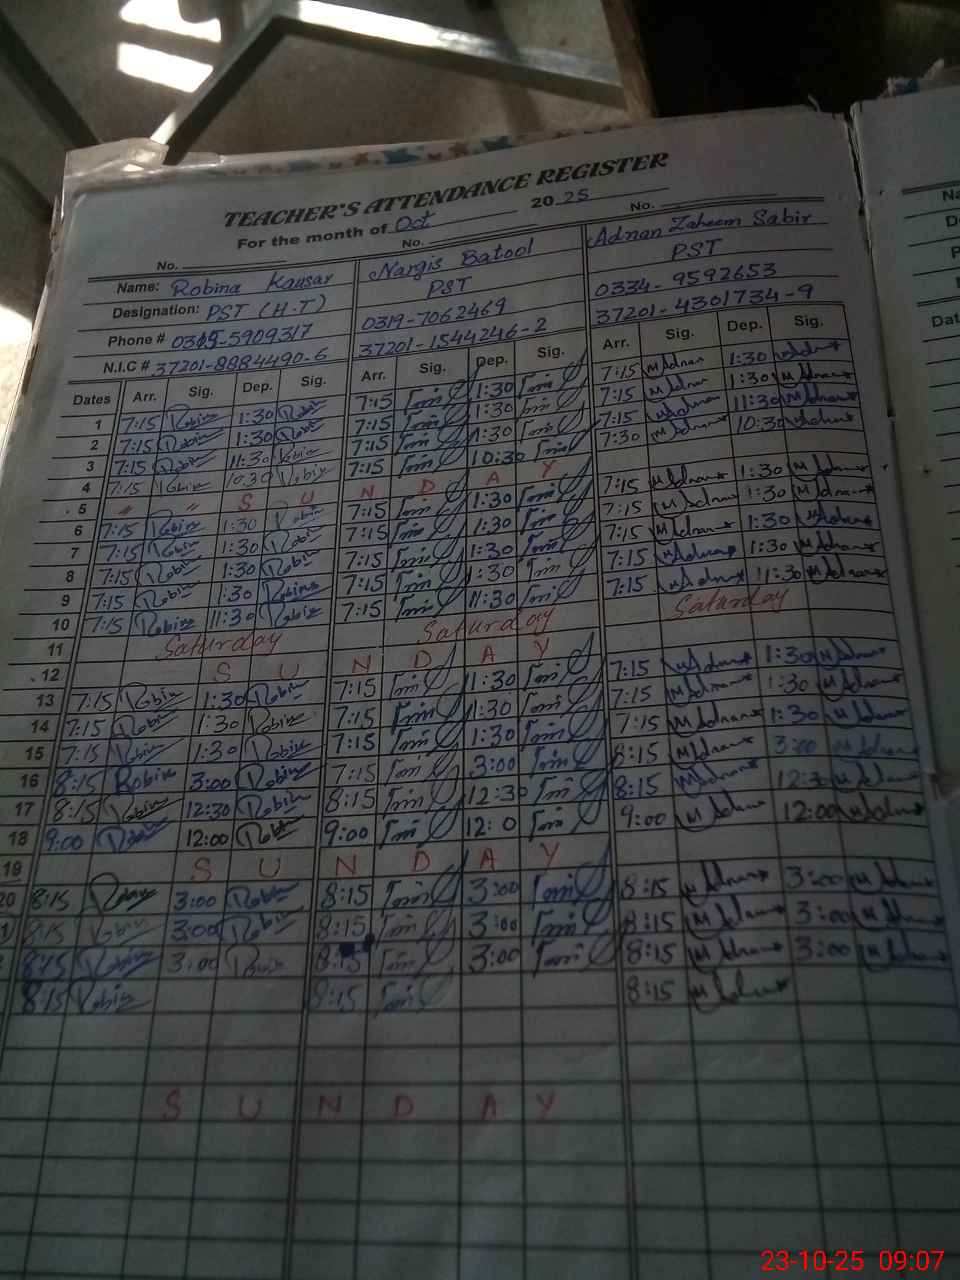 TEACHER'S ATTENDANCE REGISTER
For the month of Oct 2025
No. No. No.
Name: Robina Kausar Nargis Batool Adnan Zaheem Sabir
Designation: PST (H.T) PST PST
Phone # 0315-5909317 0319-7062469 0334-9592653
N.I.C # 37201-8884490-6 37201-1544246-2 37201-4301734-9
Dates Arr. Sig. Dep. Sig. Arr. Sig. Dep. Sig. Arr. Sig. Dep. Sig.
1 7:15 Robina 1:30 Robina 7:15 1:30 7:15 M Adnan 1:30 M Adnan
2 7:15 Robina 1:30 Robina 7:15 1:30 7:15 M Adnan 1:30 M Adnan
3 7:15 Robina 11:30 Robina 7:15 11:30 7:15 M Adnan 11:30 M Adnan
4 7:15 Robina 10:30 Robina 7:15 10:30 7:30 M Adnan 10:30 M Adnan
5 " " S U N D A Y
6 7:15 Robina 1:30 Robina 7:15 1:30 7:15 M Adnan 1:30 M Adnan
7 7:15 Robina 1:30 Robina 7:15 1:30 7:15 M Adnan 1:30 M Adnan
8 7:15 Robina 1:30 Robina 7:15 1:30 7:15 M Adnan 1:30 M Adnan
9 7:15 Robina 1:30 Robina 7:15 1:30 7:15 M Adnan 1:30 M Adnan
10 7:15 Robina 11:30 Robina 7:15 11:30 7:15 M Adnan 11:30 M Adnan
11 Saturday Saturday Saturday
12 S U N D A Y
13 7:15 Robina 1:30 Robina 7:15 1:30 7:15 M Adnan 1:30 M Adnan
14 7:15 Robina 1:30 Robina 7:15 1:30 7:15 M Adnan 1:30 M Adnan
15 7:15 Robina 1:30 Robina 7:15 1:30 7:15 M Adnan 1:30 M Adnan
16 8:15 Robina 3:00 Robina 7:15 3:00 8:15 M Adnan 3:00 M Adnan
17 8:15 Robina 12:30 Robina 8:15 12:30 8:15 M Adnan 12:30 M Adnan
18 9:00 Robina 12:00 Robina 9:00 12:0 9:00 M Adnan 12:00 M Adnan
19 S U N D A Y
20 8:15 Robina 3:00 Robina 8:15 3:00 8:15 M Adnan 3:00 M Adnan
8:15 Robina 3:00 Robina 8:15 3:00 8:15 M Adnan 3:00 M Adnan
8:15 Robina 3:00 Robina 8:15 3:00 8:15 M Adnan 3:00 M Adnan
8:15 Robina 8:15 8:15 M Adnan
S U N D A Y
23-10-25 09:07